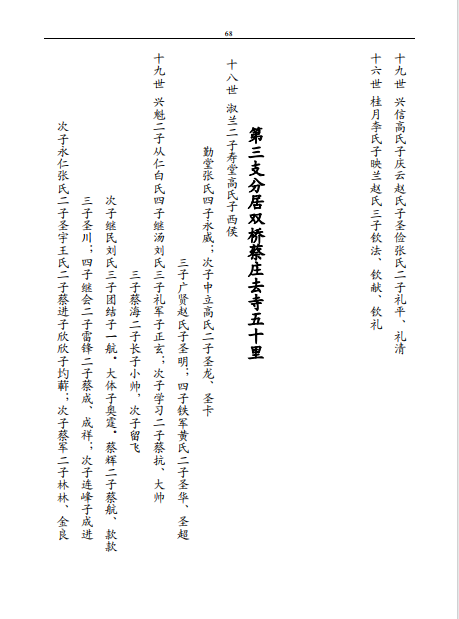 68
十九世 兴信高氏子庆云赵氏子圣俭张氏二子礼平、礼清
十六世 桂月李氏子映兰赵氏三子钦法、钦献、钦礼
第三支分居双桥蔡庄去寺五十里
十八世 淑兰二子寿堂高氏子西侯
勤堂张氏四子永威；次子中立高氏二子圣龙、圣卡
三子广贤赵氏子圣明；四子铁军黄氏二子圣华、圣超
十九世 兴魁二子从仁白氏四子继汤刘氏三子礼军子正玄；次子学习二子蔡抗、大帅
三子蔡海二子长子小帅，次子留飞
次子继民刘氏三子团结子一航．大体子奥霆．蔡辉二子蔡航、款款
三子圣川；四子继会二子雷锋二子蔡成、成祥；次子连峰子成进
次子永仁张氏二子圣宇王氏二子蔡进子欣欣子灼蕲；次子蔡军二子林林、金良